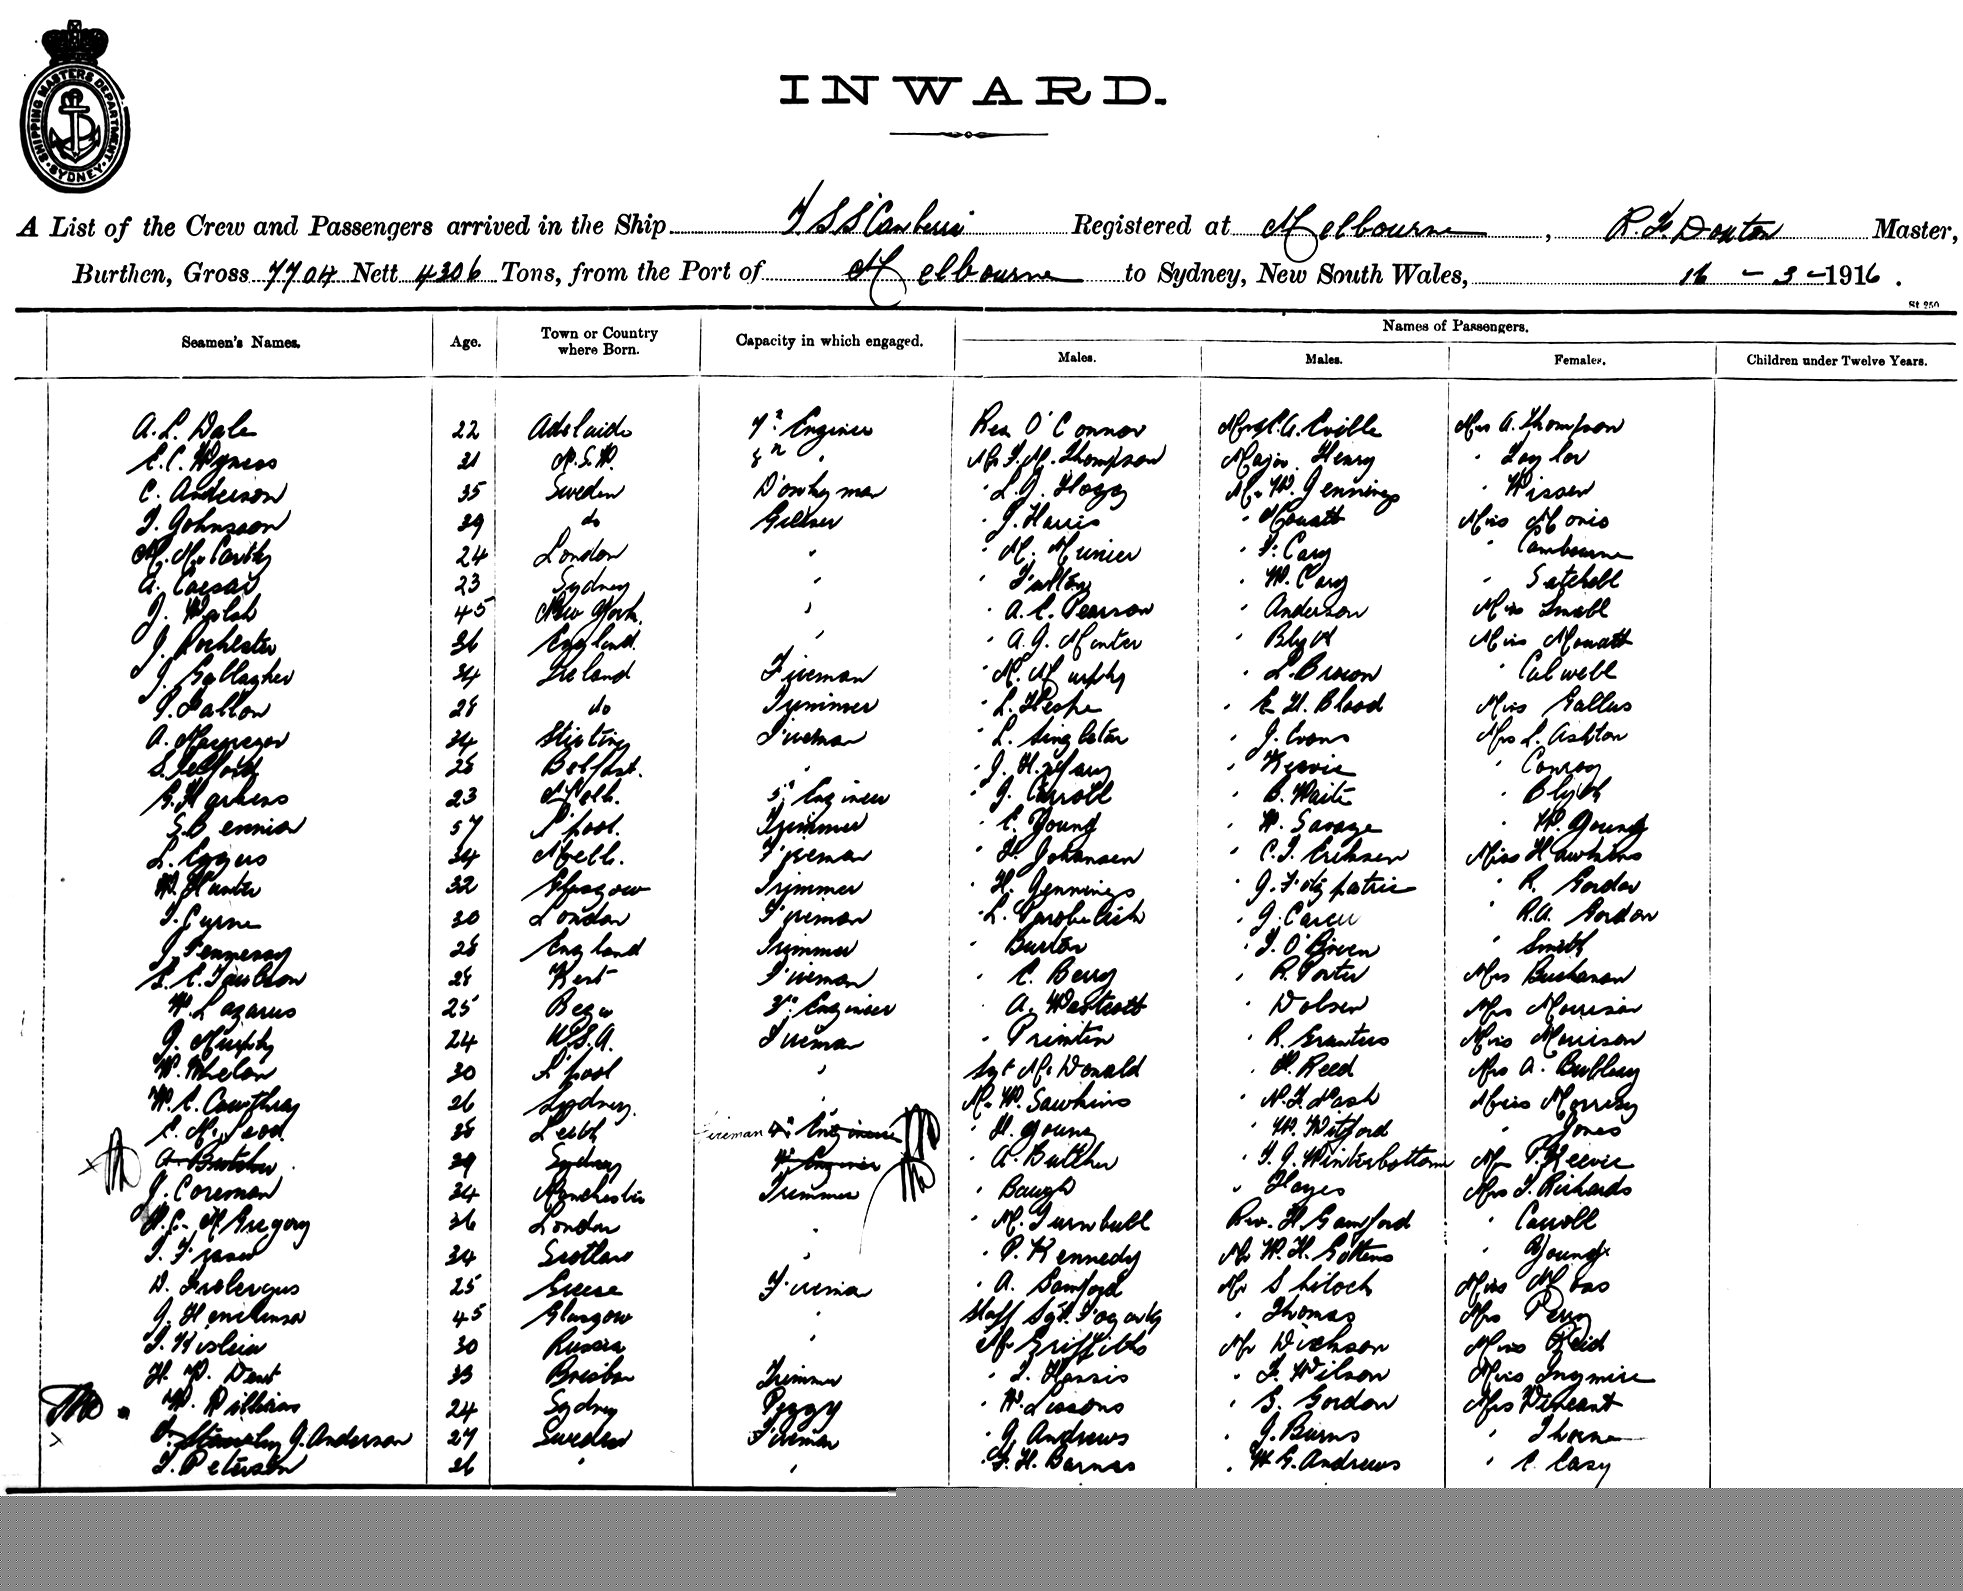 SHIPPING MASTERS DEPARTMENT
SYDNEY
INWARD.
A List of the Crew and Passengers arrived in the Ship T S S Canberra Registered at Melbourne, R. F. Doxton Master,
Burthen, Gross 7704 Nett 4306 Tons, from the Port of Melbourne to Sydney, New South Wales, 16 - 3 - 1916.
St 250
Seamen's Names. Age. Town or Country where Born. Capacity in which engaged. Names of Passengers.
Males. Males. Females. Children under Twelve Years.
A. L. Dale 22 Adelaide 7th Engineer Rev O'Connor A. Eville Mrs A. Thompson
E. C. Wyness 31 N.S.W. 8th " Mr F. M. Thompson Major Henry " Taylor
C. Anderson 35 Sweden Donkeyman " L. J. Hogg Mr W. Jennings "
J. Johnsson 39 do Greaser " J. Harris " Mouatt Miss
M. McCarthy 24 London " " M. " F. Cary "
A. Caesar 23 Sydney " " " W. Cary " Satchell
J. Walsh 45 New York. " " A. E. Pearson " Anderson Miss Small
J. Rochester 36 England. " " A. J. Minter " Blyth Miss Mouatt
J. Gallagher 34 Ireland Fireman " M. Murphy " L. Brown " Calwell
P. Fallon 28 do Trimmer " L. Heske " E. H. Blood Miss Gallus
A. Macgregor 34 Stirling Fireman " L. Singleton " J. Evans Mrs L. Ashton
S. 28 Belfast. " " J. H. " Kervie " Conroy
G. Harkess 23 Melb. 5th Engineer " J. Carroll " B. Waite " Blyth
S. Bennior 57 L'pool. Trimmer " C. Young " W. Savage " W. Young
L. Eggers 34 Melb. Fireman " H. Johansen " C. J. Eriksen Miss Hawkins
W. Hunter 32 Glasgow Trimmer " H. Jennings " J. Fitzpatric " R. Gordon
T. Cyrne 30 London Fireman " L. " J. Carew " R.A. Gordon
J. Fennessy 28 England Trimmer " Burton " J. O'Brien " Smith
28 Kent Fireman " C. Berry " R. Porter Mrs Buchanan
W. Lazarus 25 Bega 3rd Engineer " A. Westcott " Dolsen Mrs Morrison
J. Murphy 24 U.S.A. Fireman " " R. Miss Morrison
W. Whelan 30 L'pool " Sgt McDonald " H. Reed Mrs A.
W. E. Cawthray 26 Sydney. " Mr W. Sawkins " N. F. Nash Miss Morrisy
C. McLeod 38 Leith Fireman 4th Engineer " H. Young " W. Witford " Jones
A. Butcher 29 Sydney 4th Engineer " A. Butcher " F. J. Winterbottom Mrs P. Keevie
J. Coreman 34 Manchester Trimmer " Baugh " Hayes Mrs J. Richards
H. C. McGregory 36 London " " M. Turnbull Rev. H. Gamford " Carroll
T. Fraser 34 Scotland " " P. Kennedy Mr W. H. " Young
D. 25 Greece Fireman " A. Bamford Mr Shiloch Miss Moss
J. Henderson 45 Glasgow " Staff Sgt. Fogarty " Thomas Mrs Perry
J. Kislein 30 Russia " Mr Griffiths Mr Dickson Miss Reid
H. W. Dent 33 Brisban Trimmer " J. Harris " F. Wilson Miss Ingmire
W. Williams 24 Sydney Peggy " W. Lissons " G. Gordon Mrs Vincant
J. Anderson 27 Sweden Fireman " G. Andrews " J. Burns " Thorne
J. Peterson 26 " " " F. H. Barnes " W G. Andrews " C. Casy